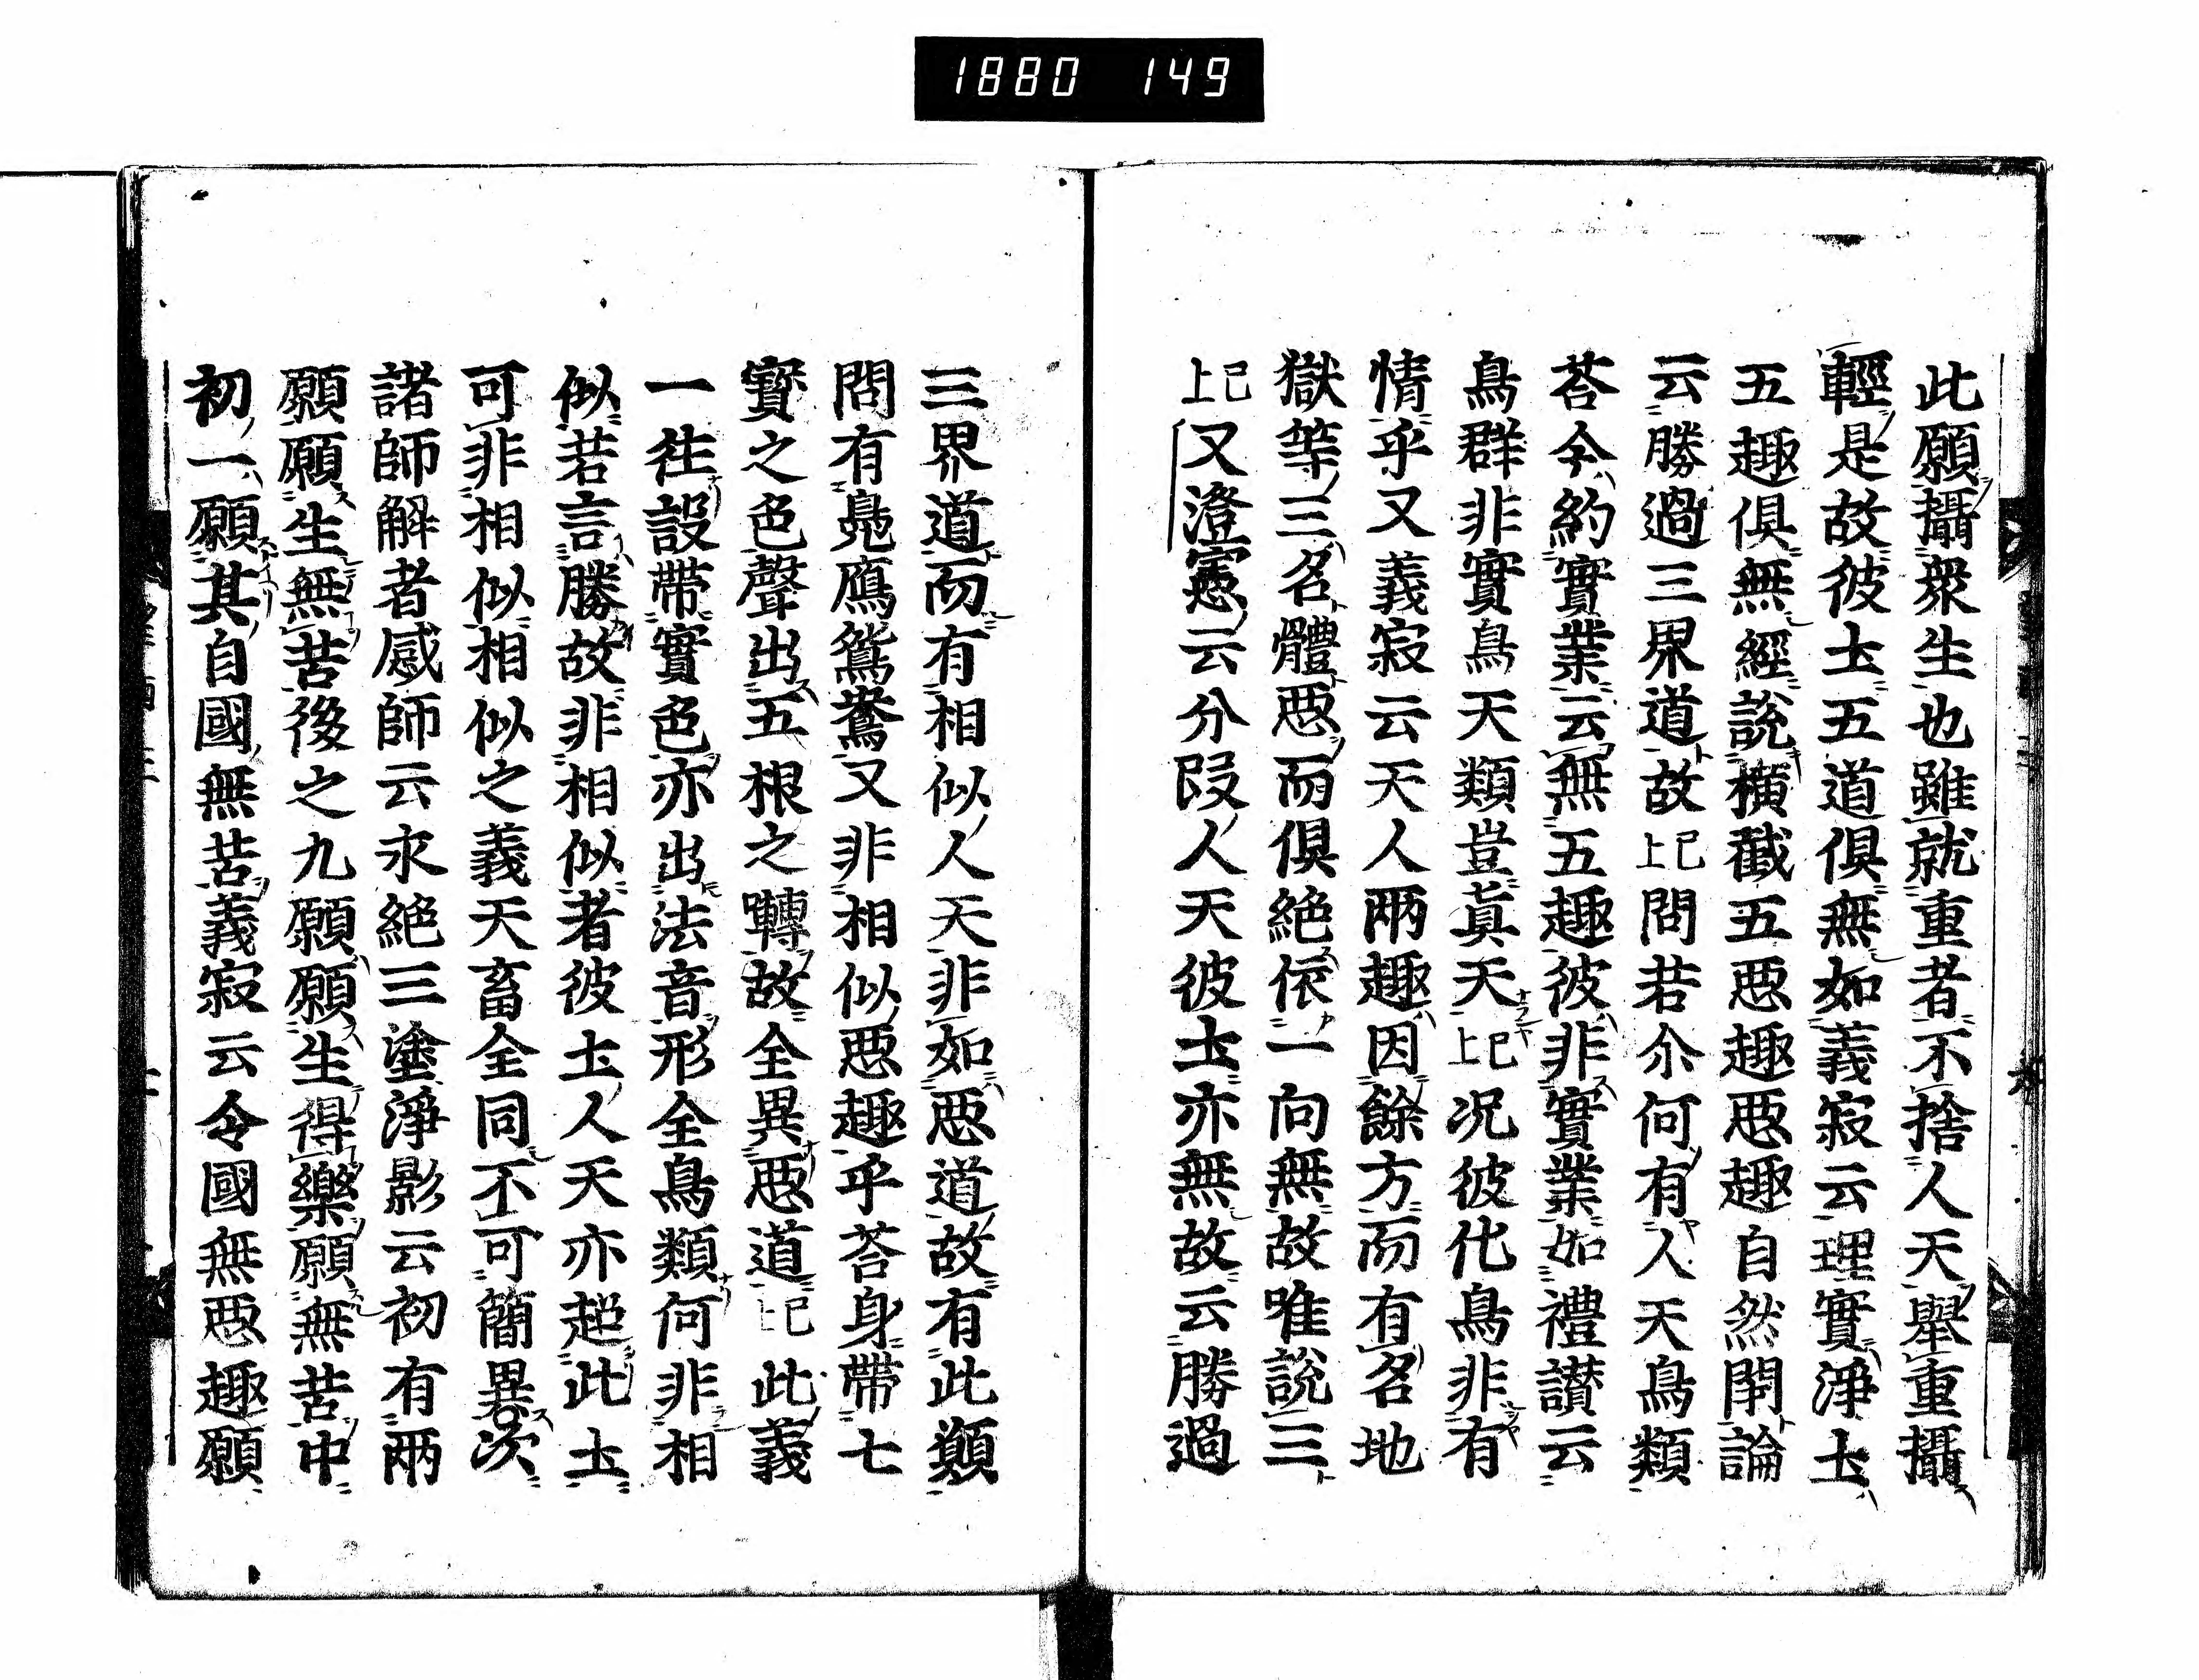 1880 149
此願攝衆生也雖就重者不捨人天舉重攝
輕是故彼土五道俱無如義寂云理實淨土
五趣俱無經說橫截五惡趣惡趣自然閇論
云勝過三界道故已上問若尒何有人天鳥類
荅今約實業云無五趣彼非實業如禮讃云
鳥群非實鳥天類豈眞天已上况彼化鳥非有
情乎又義寂云天人兩趣因餘方而有名地
獄等三名體惡而俱絶依一向無故唯說三
已上又澄憲云分段人天彼土亦無故云勝過
三界道而有相似人天非如惡道故有此類
問有鳧鴈鴛鴦又非相似惡趣乎荅身帶七
寳之色聲出五根之囀故全異惡道已上此義
一往設帶實色亦出法音形全鳥類何非相
似若言勝故非相似者彼土人天亦超此土
可非相似相似之義天畜全同不可簡異次
諸師解者感師云永絶三塗淨影云初有兩
願願生無苦後之九願願生得樂願無苦中
初一願其自國無苦義寂云令國無惡趣願